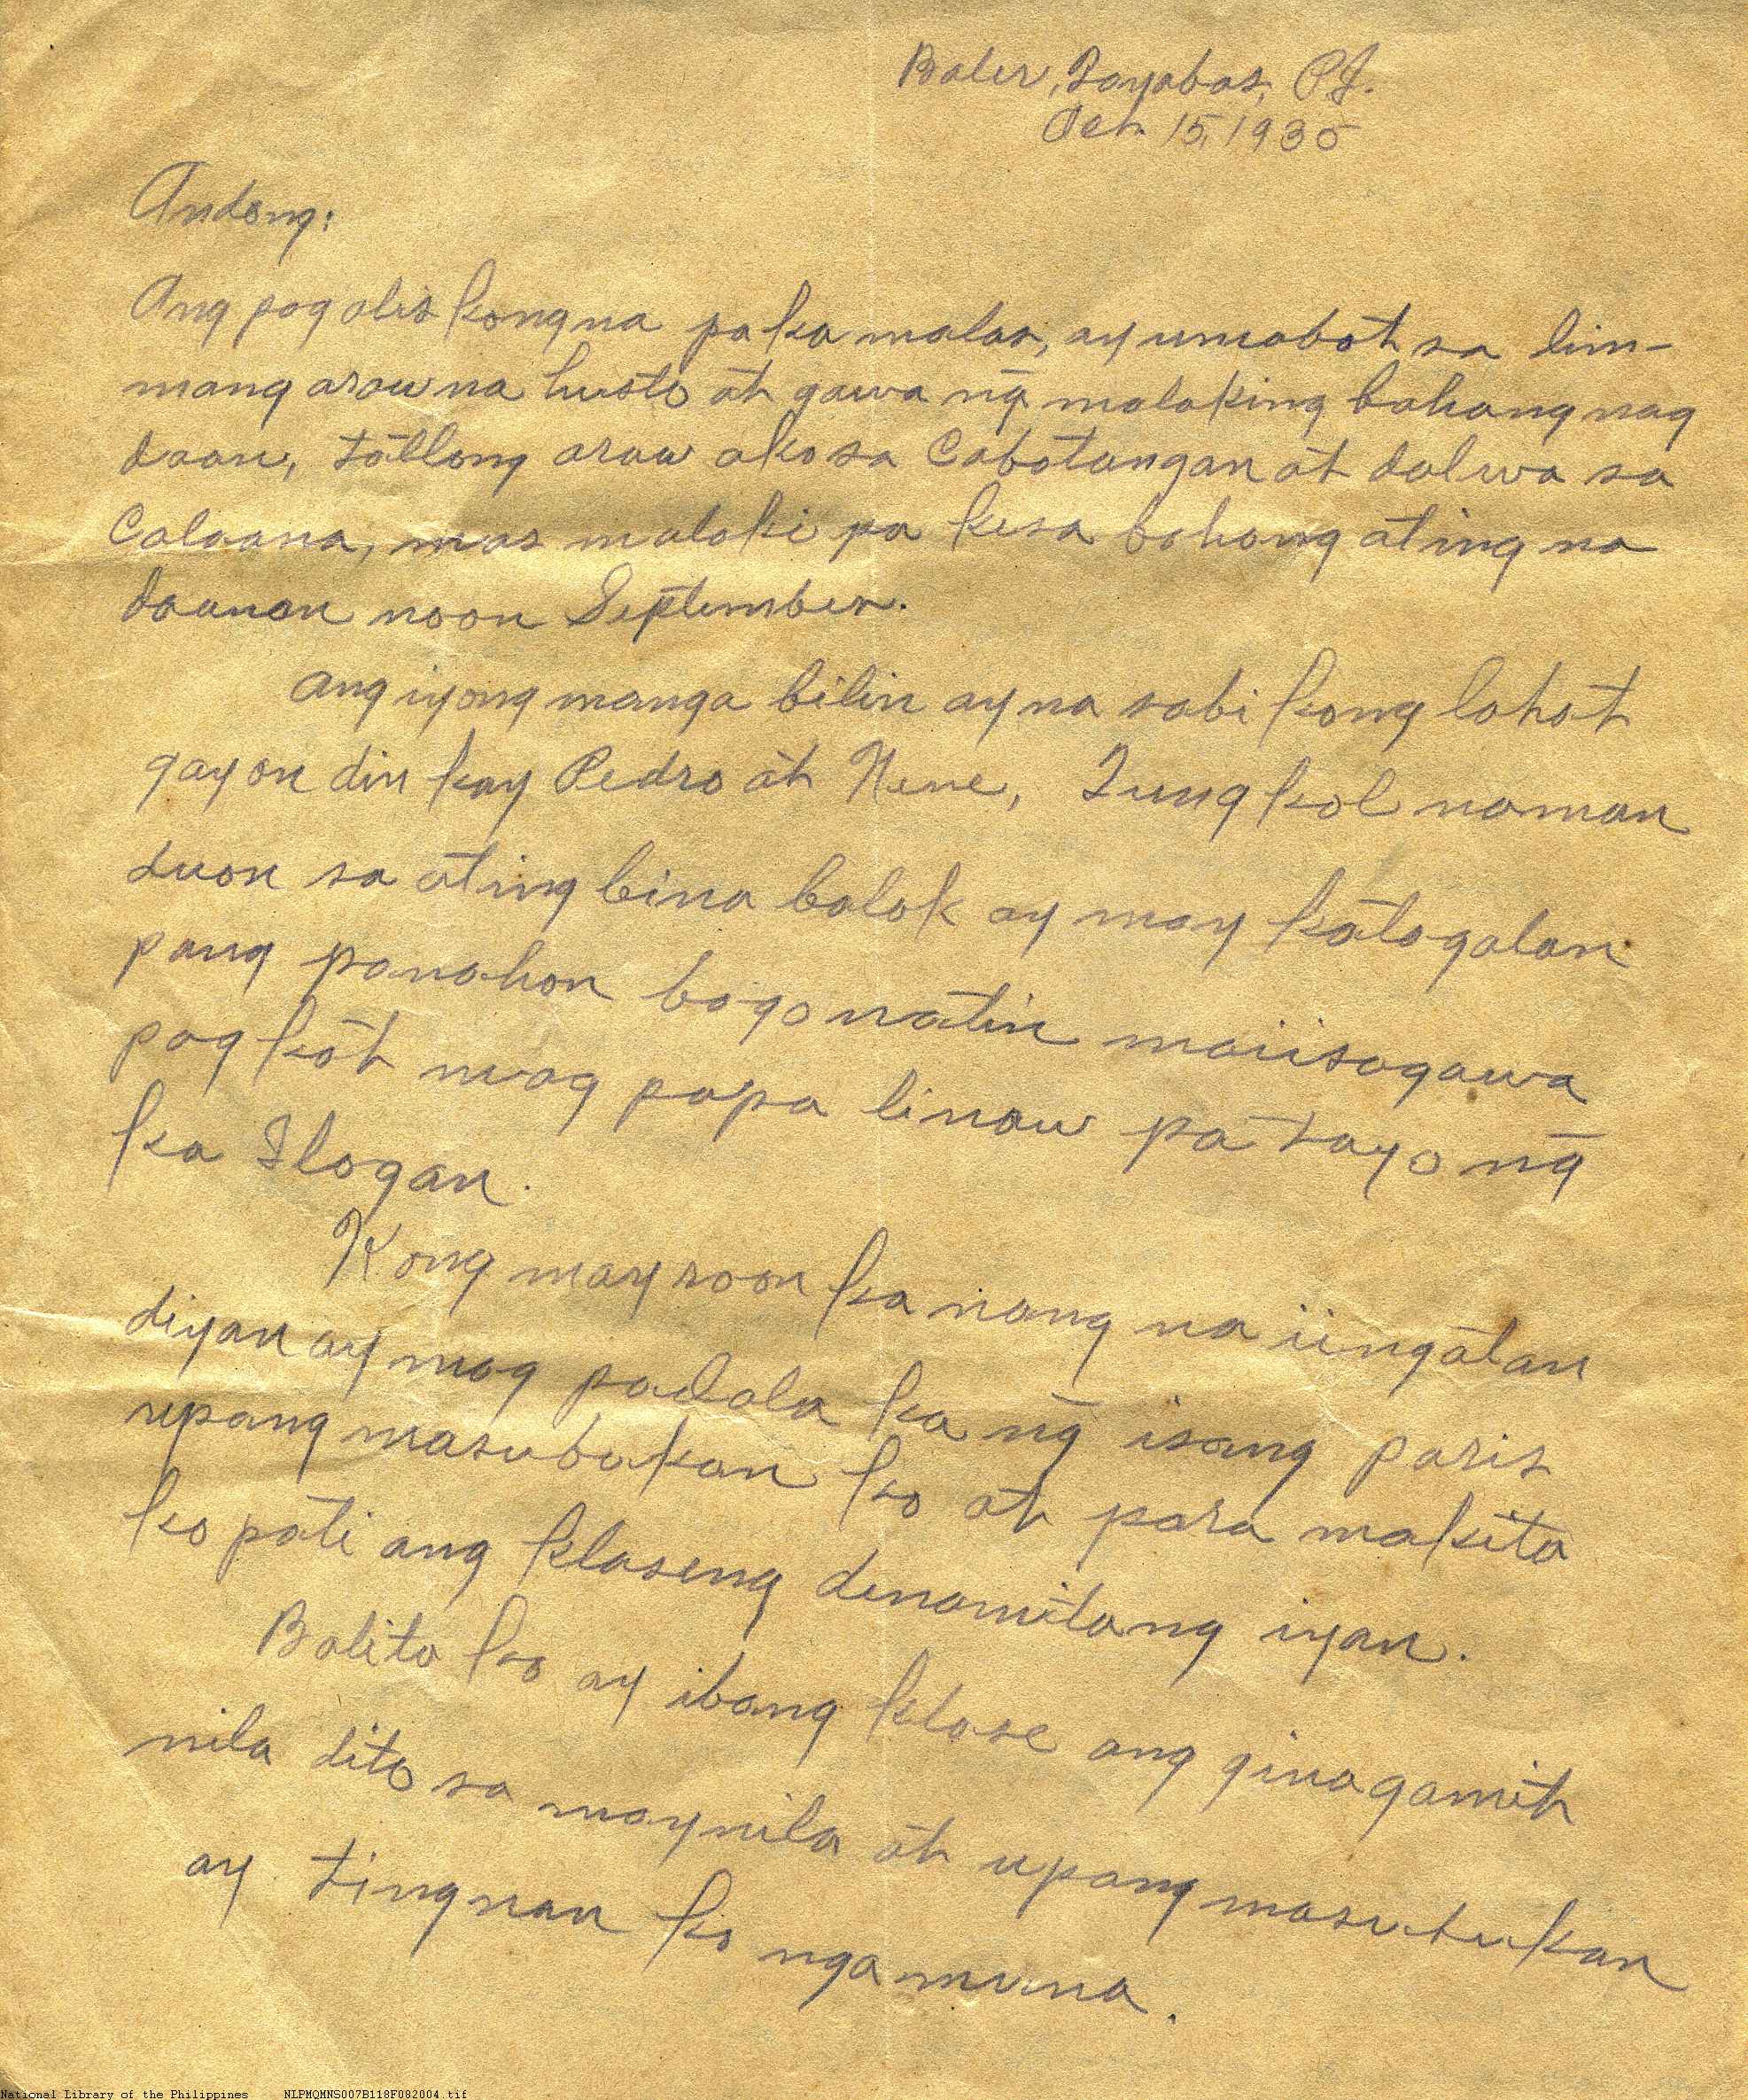 Baler, Tayabas, P.I.
Oct. 15, 1935
Andong:
Ang pag alis kong na paka malas, ay umabot sa lim-
mang araw na husto at gawa ng malaking bahang nag
daan, tatlong araw ako sa Cabatangan at dalwa sa
Calaana, mas malaki pa kesa bahang ating na
daanan noon September.
Ang iyong manga bilin ay na sabi kong lahat
gayon din kay Pedro at Nene, Tungkol naman
duon sa ating bina balak ay may katagalan
pang panahon bago natin maiisagawa
pagkat mag papa linaw pa tayo ng
ka Ilogan.
Kong mayroon ka nang na iingatan
diyan ay mag padala ka ng isang paris
upang masubukan ko at para makita
ko pati ang klaseng denamitang iyan.
Balita ko ay ibang klase ang ginagamit
nila dito sa maynila at upang masubukan
ay tingnan ko nga muna.
National Library of the Philippines NLPMQMNS007B118F082004.tif